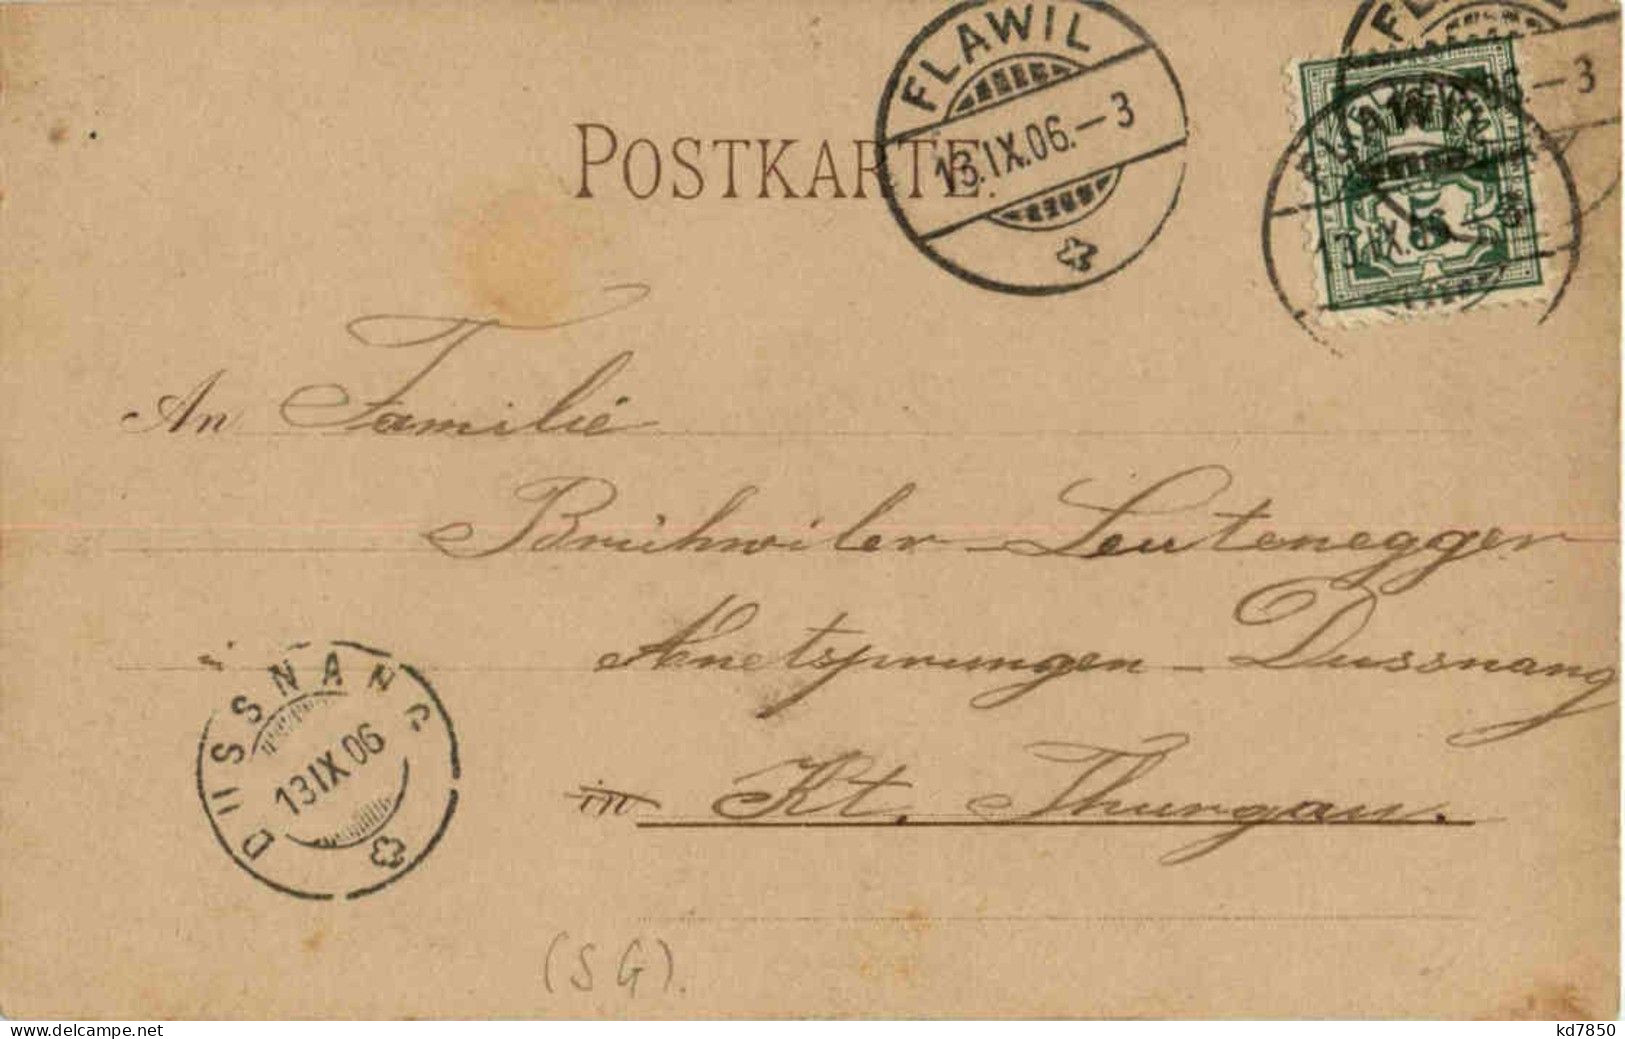 POSTKARTE.
FLAWIL
13.IX.06.–3
FLAWIL
13.IX.
5
An Familie
Brühwiler-Leutenegger
Anetsprungen-Dussnang
in Kt. Thurgau.
DUSSNANG
13 IX 06
(SG).
kd7850